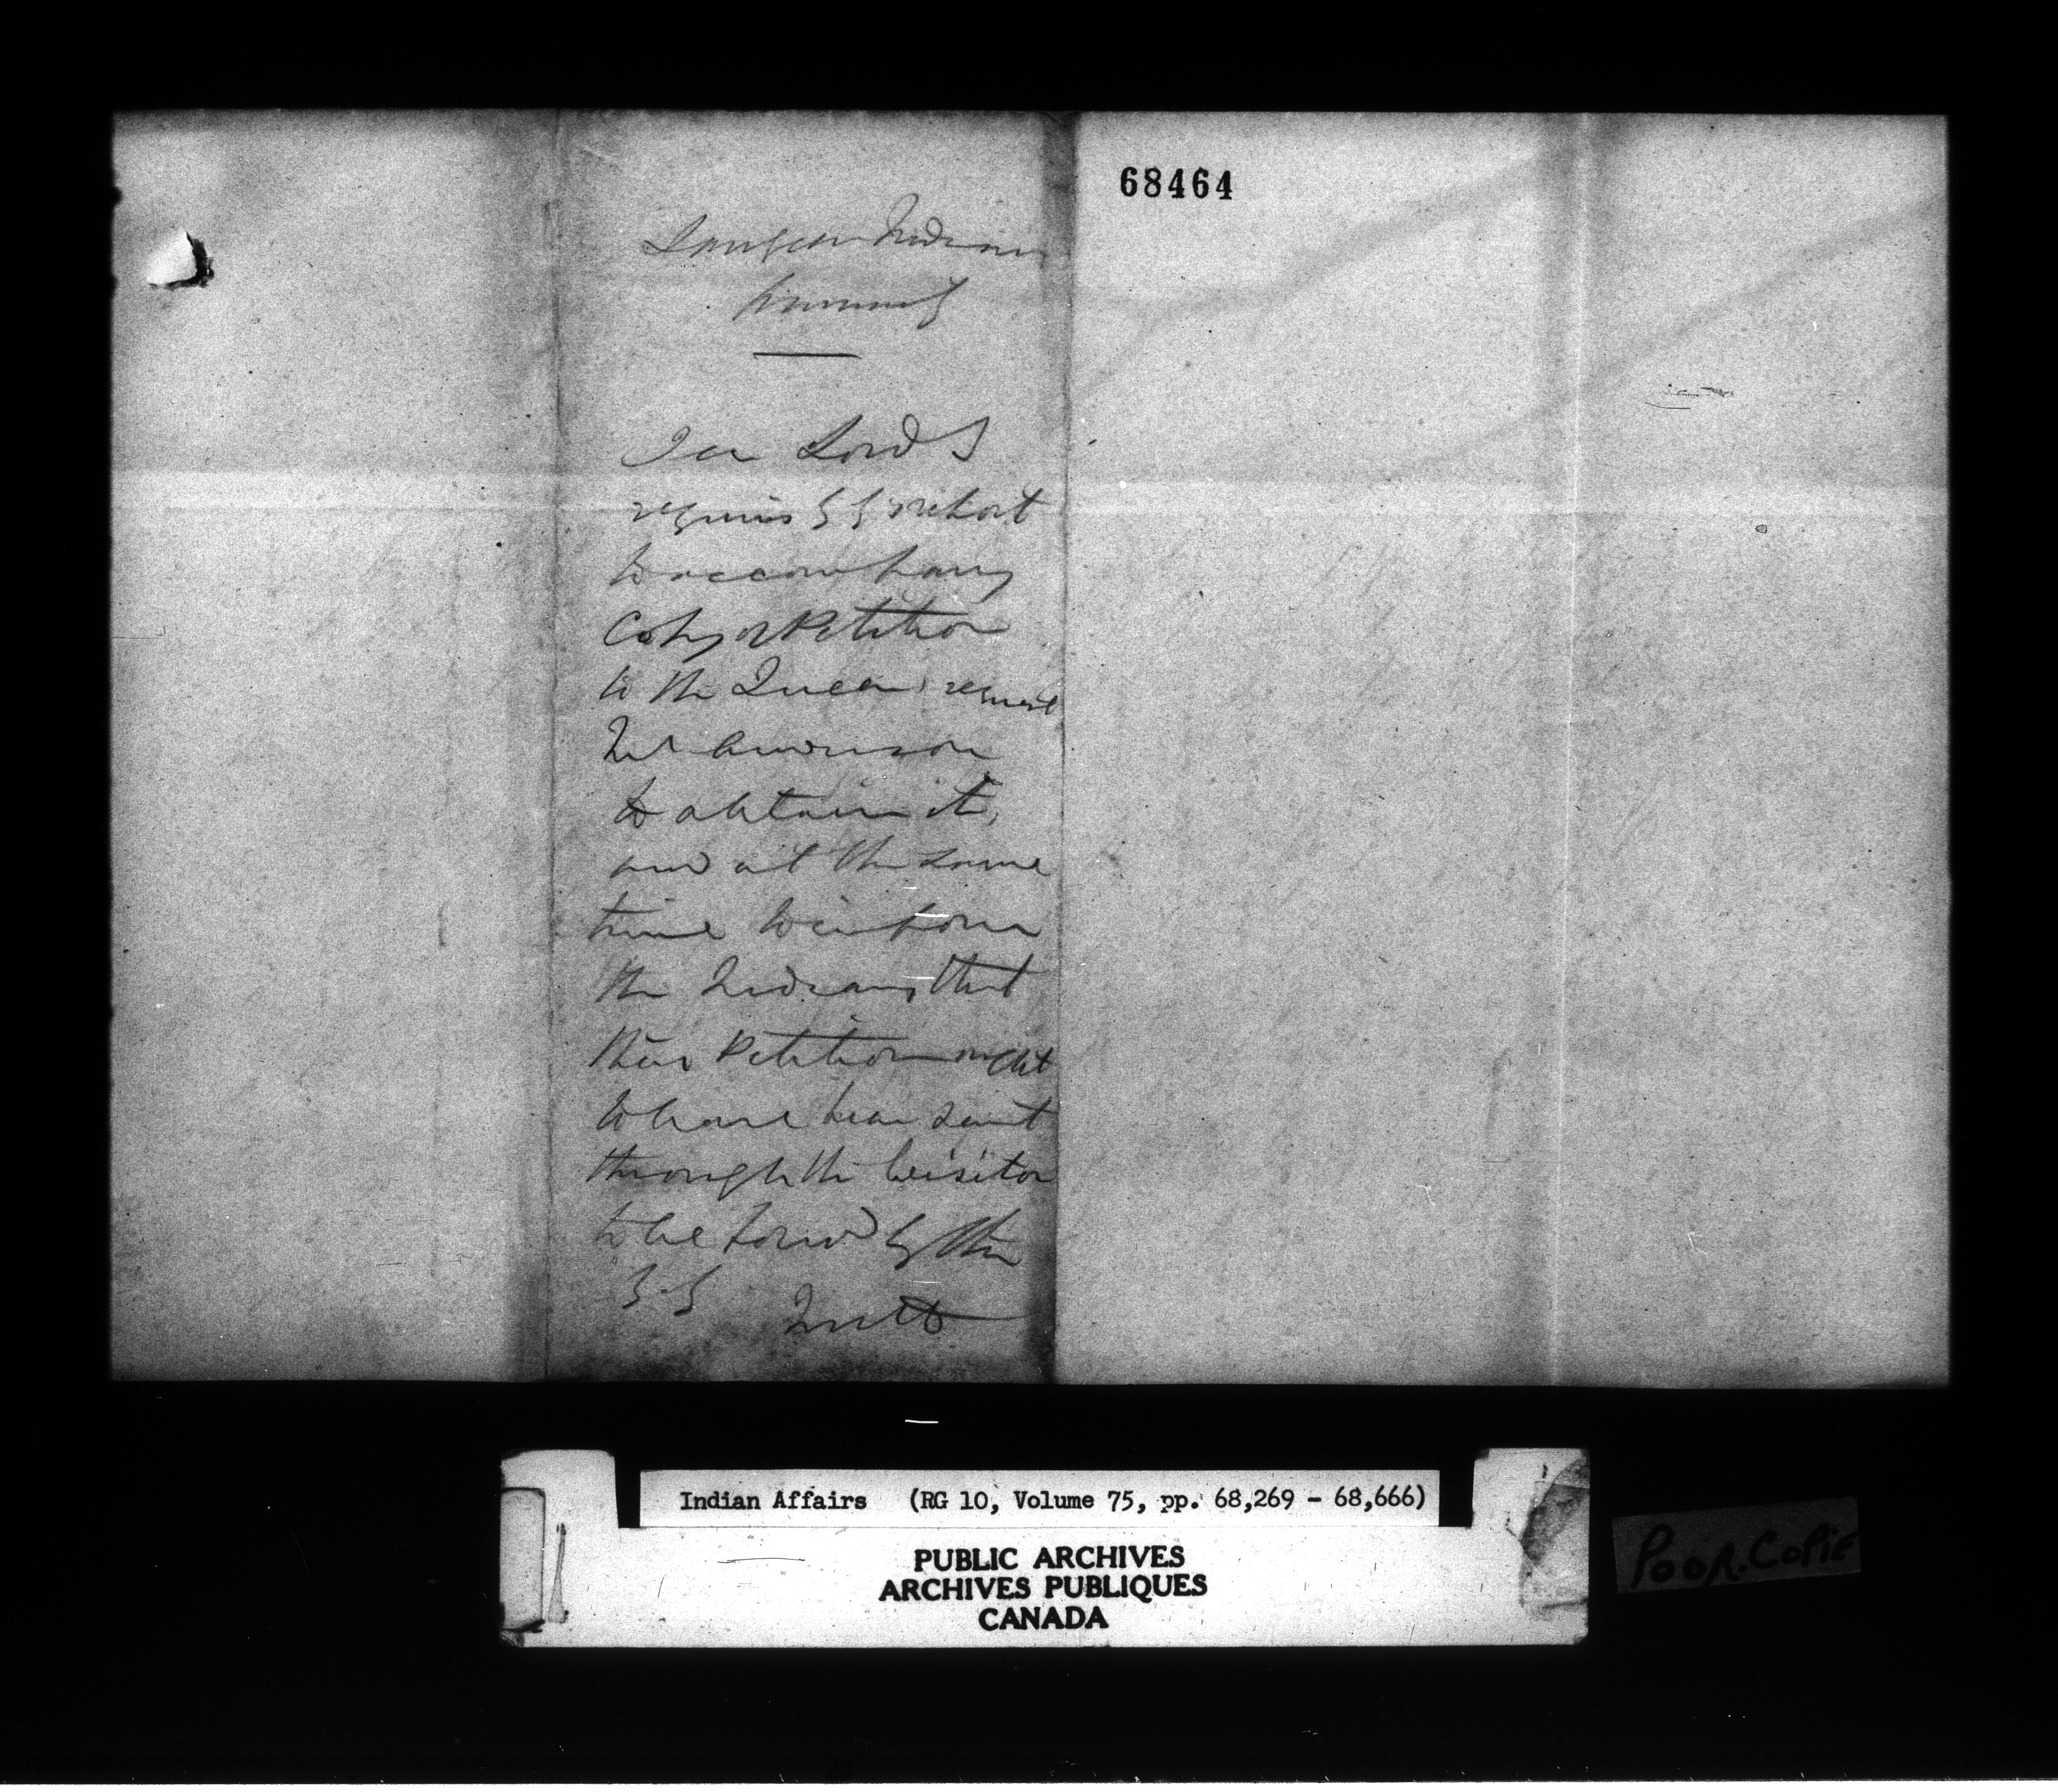 68464
Saugeen Indians
As Lord S
requires G G report
to accompany
Copy of Petition
to the Queen, request
Mr Anderson
to obtain it,
and at the same
time to inform
the Indians that
their Petition ought
to have been sent
through the Visitor
to be forwd by the
G. G.
Indian Affairs (RG 10, Volume 75, pp. 68,269 - 68,666)
PUBLIC ARCHIVES
ARCHIVES PUBLIQUES
CANADA
POOR. COPIE